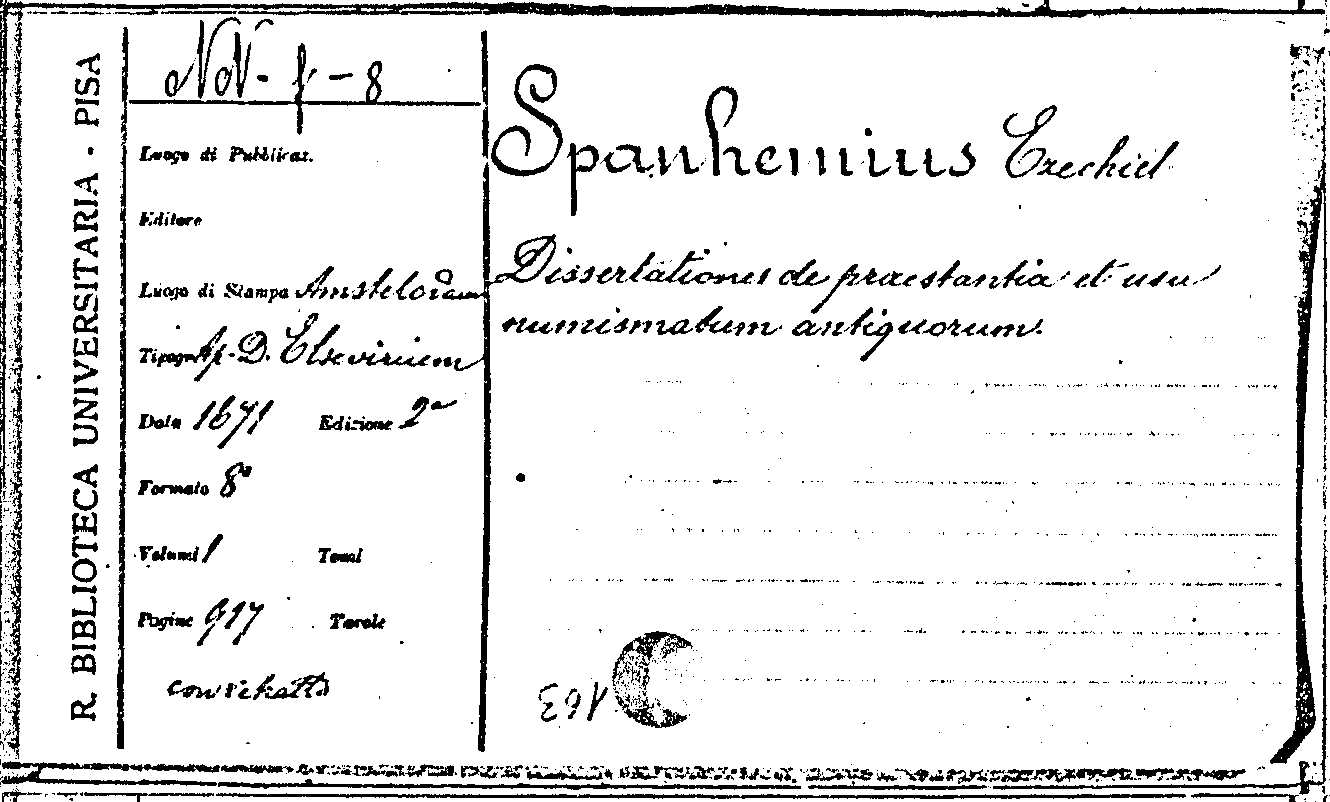 R. BIBLIOTECA UNIVERSITARIA - PISA
NN - f - 8
Luogo di Pubblicaz.
Editore
Luogo di Stampa Amstelodam
Tipogr. Ap. D. Elsevirium
Data 1671 Edizione 2a
Formato 8°
Volumi 1 Tomi
Pagine 917 Tavole
con ritratto
Spanhemius Ezechiel
Dissertationes de praestantia et usu
numismatum antiquorum.